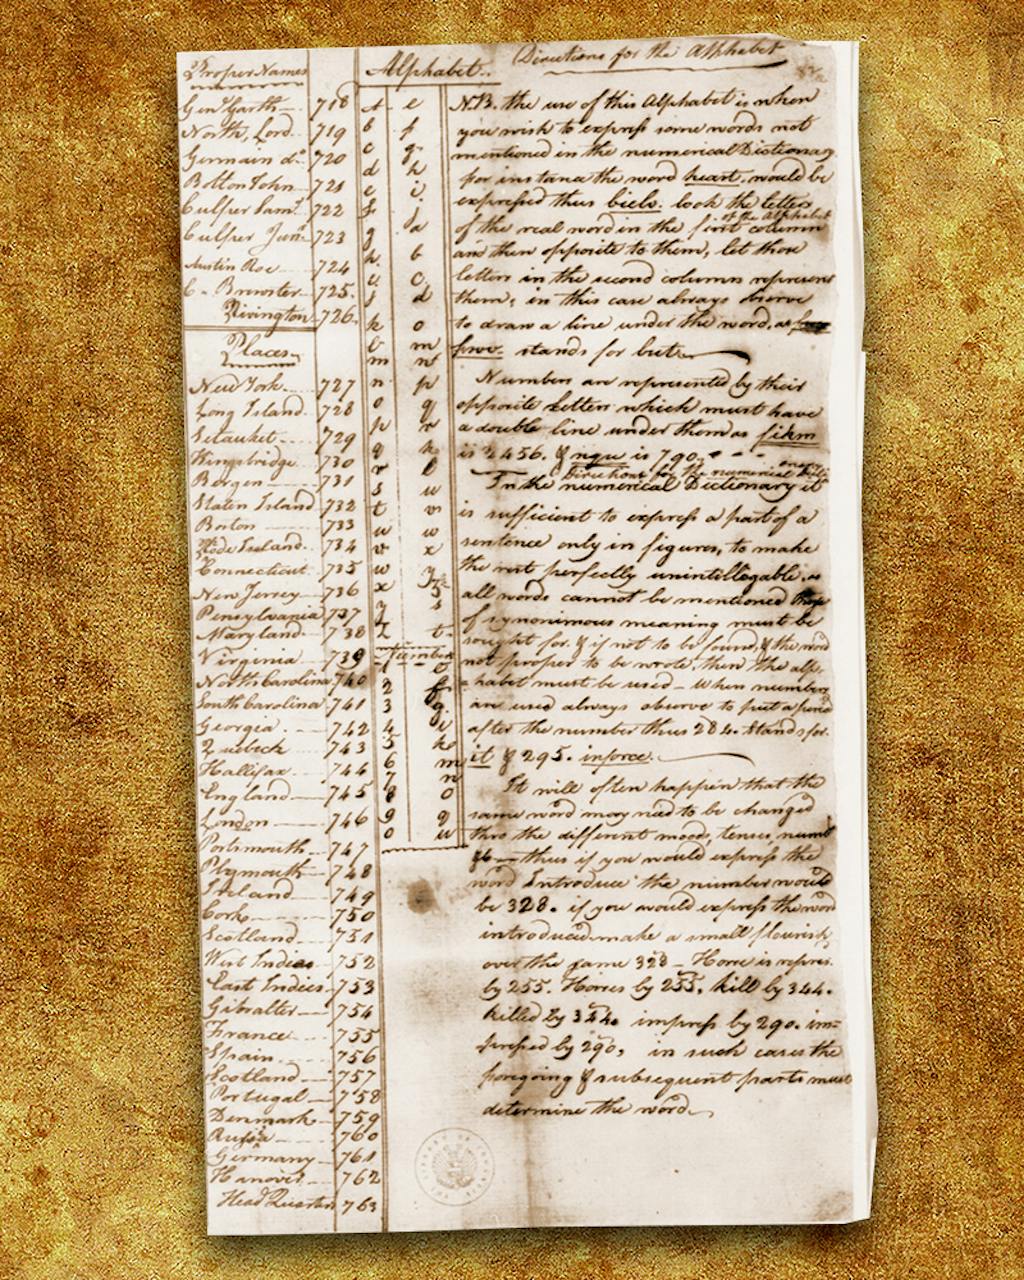 Proper Names
Gen.l Garth 718
North, Lord 719
Germain do. 720
Bolton John 721
Culper Sam.l 722
Culper Jun.r 723
Austin Roe 724
C. Brewster 725.
Rivington 726.
Places
New York 727
Long Island 728
Setauket 729
Kingsbridge 730
Bergen 731
Staten Island 732
Boston 733
Rode Island 734
Connecticut 735
New Jersey 736
Pensylvania 737
Maryland 738
Virginia 739
North Carolina 740
South Carolina 741
Georgia 742
Quebeck 743
Hallifax 744
England 745
London 746
Portsmouth 747
Plymouth 748
Ireland 749
Cork 750
Scotland 751
West Indies 752
East Indies 753
Gibralter 754
France 755
Spain 756
Scotland 757
Portugal 758
Denmark 759
Rusia 760
Germany 761
Hanover 762
Head Quarters 763
Alphabet.
A e
b f
c g
d h
e i
f j
g a
h b
i c
j d
k o
l m
m n
n p
o q
p r
q k
r l
s u
t v
u w
v x
w y
x z
y s
z t
Numbers
1 e
2 f
3 g
4 i
5 k
6 m
7 n
8 o
9 q
0 u
Directions for the Alphabet
N.B. the use of this Alphabet is when
you wish to express some words not
mentioned in the numerical Dictionary
for instance the word heart. would be
expressed thus biels. look the letters
of the real word in the first column
of the Alphabet
and then opposite to them, let those
letters in the second column represent
them; in this case always observe
to draw a line under the word, as
fwv. stands for but.
Numbers are represented by their
opposite letters which must have
a double line under them as fikm
is 2456. & nqu is 790.
Directions for the numerical
In the numerical Dictionary it
is sufficient to express a part of a
sentence only in figures, to make
the rest perfectly unintellegable, as
all words cannot be mentioned those
of synonimous meaning must be
sought for. & if not to be found, & the word
not proper to be wrote, then the alp-
habet must be used – when numbers
are used always observe to put a period
after the number thus 284. stands for.
it & 295. inforce.
It will often happen that the
same word may nead to be changed
thro the different moods, tenses, numb
&c — thus if you would express the
word Introduce the number would
be 328. if you would express the word
introduced make a small flourish
over the same 328 – Horse is repres.
by 255. Horses by 255. kill by 344.
killed by 344. impress by 290. im=
pressed by 290, in such cases the
foregoing & subsequent parts must
determine the word